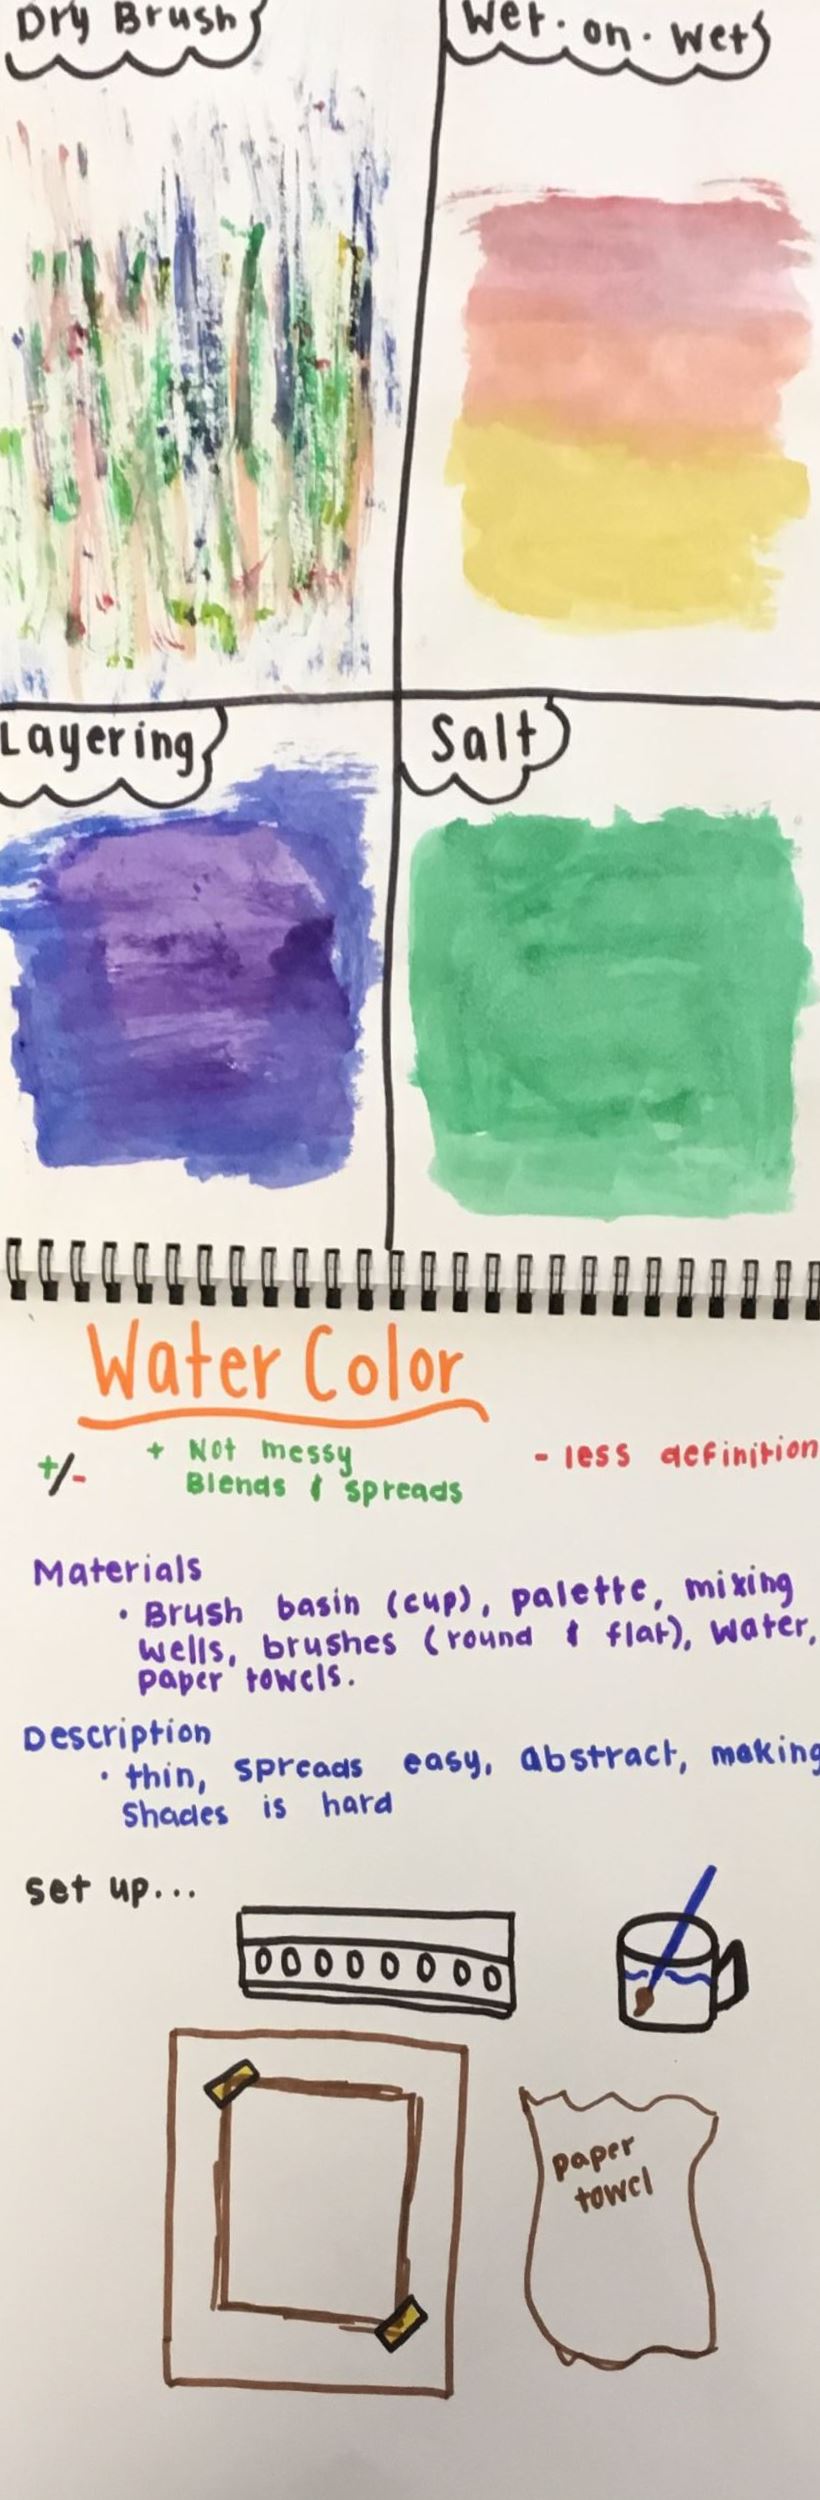 Dry Brush
Wet-on-Wet
Layering
Salt
Water Color
+/-
+ Not messy
Blends & spreads
- less definition
Materials
• Brush basin (cup), palette, mixing
wells, brushes (round & flat), water,
paper towels.
Description
• thin, spreads easy, abstract, making
Shades is hard
set up...
paper
towel